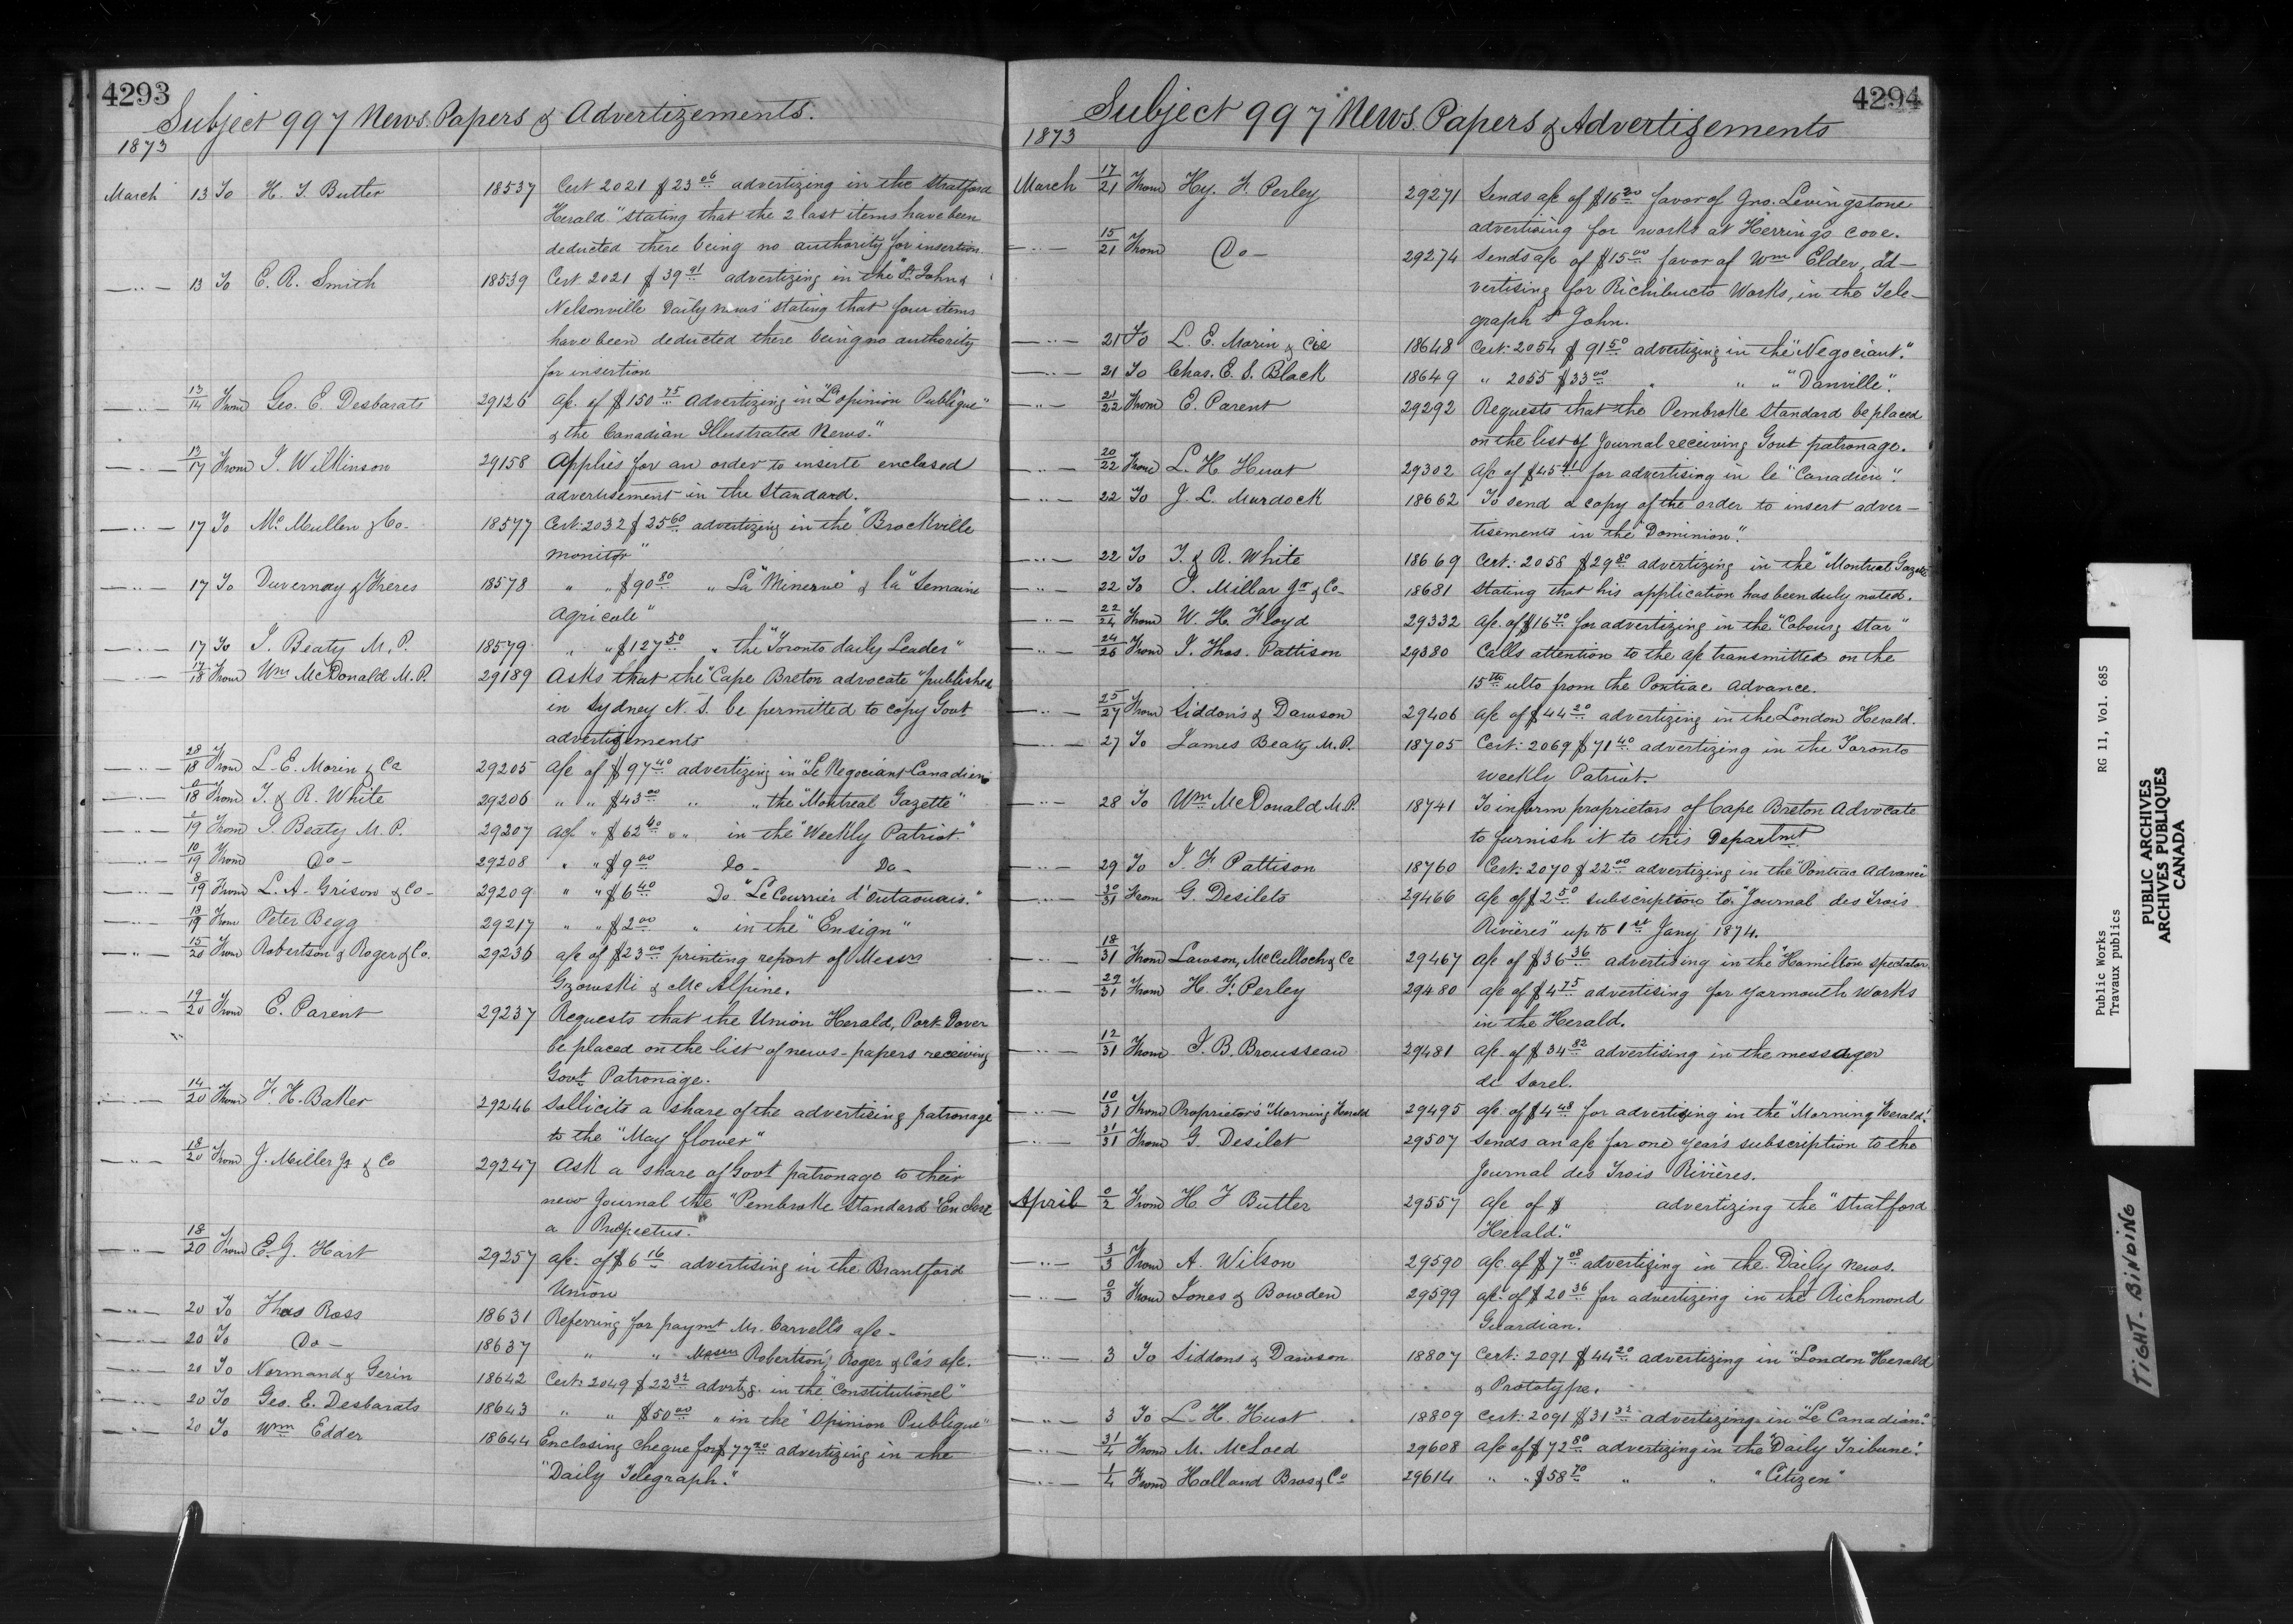 4293
Subject 997 News Papers & Advertizements.
1873
March 13 To H. T. Butler 18537 Cert 2021 $23.06 advertizing in the Stratford
Herald" stating that the 2 last items have been
deducted there being no authority for insertion.
—"— 13 To E. R. Smith 18539 Cert 2021 $39.91 advertizing in the "St. John &
Nelsonville Daily News" stating that four items
have been deducted there being no authority
for insertion
—"— 13/14 From Geo. E. Desbarats 29126 a/c. of $150.75 advertizing in "L'opinion Publique"
& the Canadian Illustrated News."
—"— 17 From J. Wilkinson 29158 Applies for an order to inserte enclosed
advertisement in the Standard.
—"— 17 To McMullen & Co- 18577 Cert: 2032 $25.60 advertizing in the "Brockville
monitor"
—"— 17 To Duvernay & Freres 18578 " " $90.80 " La "Minerve" & la "Semaine
Agricole"
—"— 17 To J. Beaty M.P. 18579 " " $127.50 " the "Toronto daily Leader"
—"— 17/18 From Wm McDonald M.P. 29189 Asks that the "Cape Breton advocate" published
in Sydney N.S. be permitted to copy Govt
advertizements
—"— 28/18 From L. E. Morin & Co 29205 a/c of $97.40 advertizing in "Le Negociant Canadien"
—"— 18 From T. & R. White 29206 " " $43.00 " " the "Montreal Gazette"
—"— 19 From J. Beaty M.P. 29207 a/c " $62.40 " " in the "Weekly Patriot."
—"— 10/19 From Do - 29208 " " $9.00 Do - Do -
—"— 8/19 From L. A. Grison & Co - 29209 " " $6.40 Do "Le Courrier d'Outaouais."
—"— 13/19 From Peter Begg 29217 " " $2.00 " in the "Ensign"
—"— 15/20 From Robertson & Roger & Co. 29236 a/c of $23.00 printing report of Messrs
Gzowski & McAlpine.
—"— 19/20 From E. Parent 29237 Requests that the Union Herald, Port Dover
be placed on the list of news-papers receiving
Govt Patronage.
—"— 14/20 From F. H. Baker 29246 Sollicits a share of the advertising patronage
to the "May flower"
—"— 18/20 From J. Miller Jr & Co 29247 Ask a share of Govt patronage to their
new Journal the "Pembroke Standard" Enclose
a Prospectus."
—"— 18/20 From E. G. Hart 29257 a/c. of $6.16 advertising in the Brantford
Union
—"— 20 To Thos Ross 18631 Referring for paymt Mr. Carvell's a/c -
—"— 20 To Do - 18637 " " Messrs Robertson, Roger & Co's a/c.
—"— 20 To Normand & Gerin 18642 Cert: 2049 $22.32 advertzg. in the "Constitutionel"
—"— 20 To Geo. E. Desbarats 18643 " " $50.00 " in the "Opinion Publique"
—"— 20 To Wm Edder 18644 Enclosing cheque for $77.20 advertizing in the
"Daily Telegraph."
4294
Subject 997 News Papers & Advertizements
1873
March 17/21 From Hy. F. Perley 29271 Sends a/c of $16.20 favor of Jno. Levingstone
advertising for works at Herring's cove.
—"— 15/21 From Do - 29274 Sends a/c of $15.00 favor of Wm Elder, ad-
vertising for Richibucto Works, in the Tele-
graph St John.
—"— 21 To L. E. Morin & Cie 18648 Cert: 2054 $91.50 advertizing in the "Negociant."
—"— 21 To Chas. E. S. Black 18649 " 2055 $33.00 " " " "Danville".
—"— 21/22 From E. Parent 29292 Requests that the Pembroke Standard be placed
on the list of Journal receiving Govt patronage.
—"— 20/22 From L. H. Huot 29302 a/c of $45.91 for advertising in le "Canadien".
—"— 22 To J. L. Murdock 18662 To send a copy of the order to insert adver-
tisements in the "Dominion".
—"— 22 To T. & R. White 18669 Cert: 2058 $29.80 advertizing in the "Montreal Gazette
—"— 22 To J. Millar Jr & Co - 18681 Stating that his application has been duly noted.
—"— 22/24 From W. H. Floyd 29332 a/c. of $16.70 for advertizing in the "Cobourg Star"
—"— 24/26 From J. Thos. Pattison 29380 Calls attention to the a/c transmitted on the
15th ulto from the Pontiac Advance.
—"— 25/27 From Siddon's & Dawson 29406 a/c of $44.20 advertizing in the London Herald.
—"— 27 To James Beaty M.P. 18705 Cert: 2069 $71.40 advertizing in the Toronto
Weekly Patriot.
—"— 28 To Wm McDonald M.P. 18741 To inform proprietors of Cape Breton Advocate
to furnish it to this Departmt
—"— 29 To J. F. Pattison 18760 Cert: 2070 $22.00 advertizing in the "Pontiac Advance"
—"— 30/31 From G. Desilets 29466 a/c of $2.50 subscription to "Journal des Trois
Rivières" up to 1st Jany 1874.
—"— 18/31 From Lawson, McCulloch & Co 29467 a/c of $36.36 advertising in the "Hamilton Spectator.
—"— 29/31 From H. F. Perley 29480 a/c of $4.75 advertising for Yarmouth Works
in the Herald.
—"— 12/31 From J. B. Brousseau 29481 a/c. of $34.82 advertising in the messager
de Sorel.
—"— 10/31 From Proprietor's "Morning Herald 29495 a/c. of $4.48 for advertizing in the "Morning Herald."
—"— 31/31 From G. Desilet 29507 Sends an a/c for one year's subscription to the
Journal des Trois Rivières.
April 0/2 From H. F Butler 29557 a/c of $ advertizing the "Stratford
Herald."
—"— 3/3 From A. Wilson 29590 a/c. of $7.08 advertizing in the Daily News.
—"— 0/3 From Jones & Bowden 29599 a/c. of $20.36 for advertizing in the Richmond
Guardian.
—"— 3 To Siddons & Dawson 18807 Cert: 2091 $44.20 advertizing in "London Herald
& Prototype.
—"— 3 To L. H. Huot 18809 Cert: 2091 $31.32 advertizing in "Le Canadian."
—"— 31/4 From M. McLoed 29608 a/c of $72.80 advertizing in the "Daily Tribune".
—"— 1/4 From Holland Bros & Co 29614 " " $58.70 " " "Citizen"
Public Works RG 11, Vol. 685
Travaux publics
PUBLIC ARCHIVES
ARCHIVES PUBLIQUES
CANADA
TIGHT-BINDING